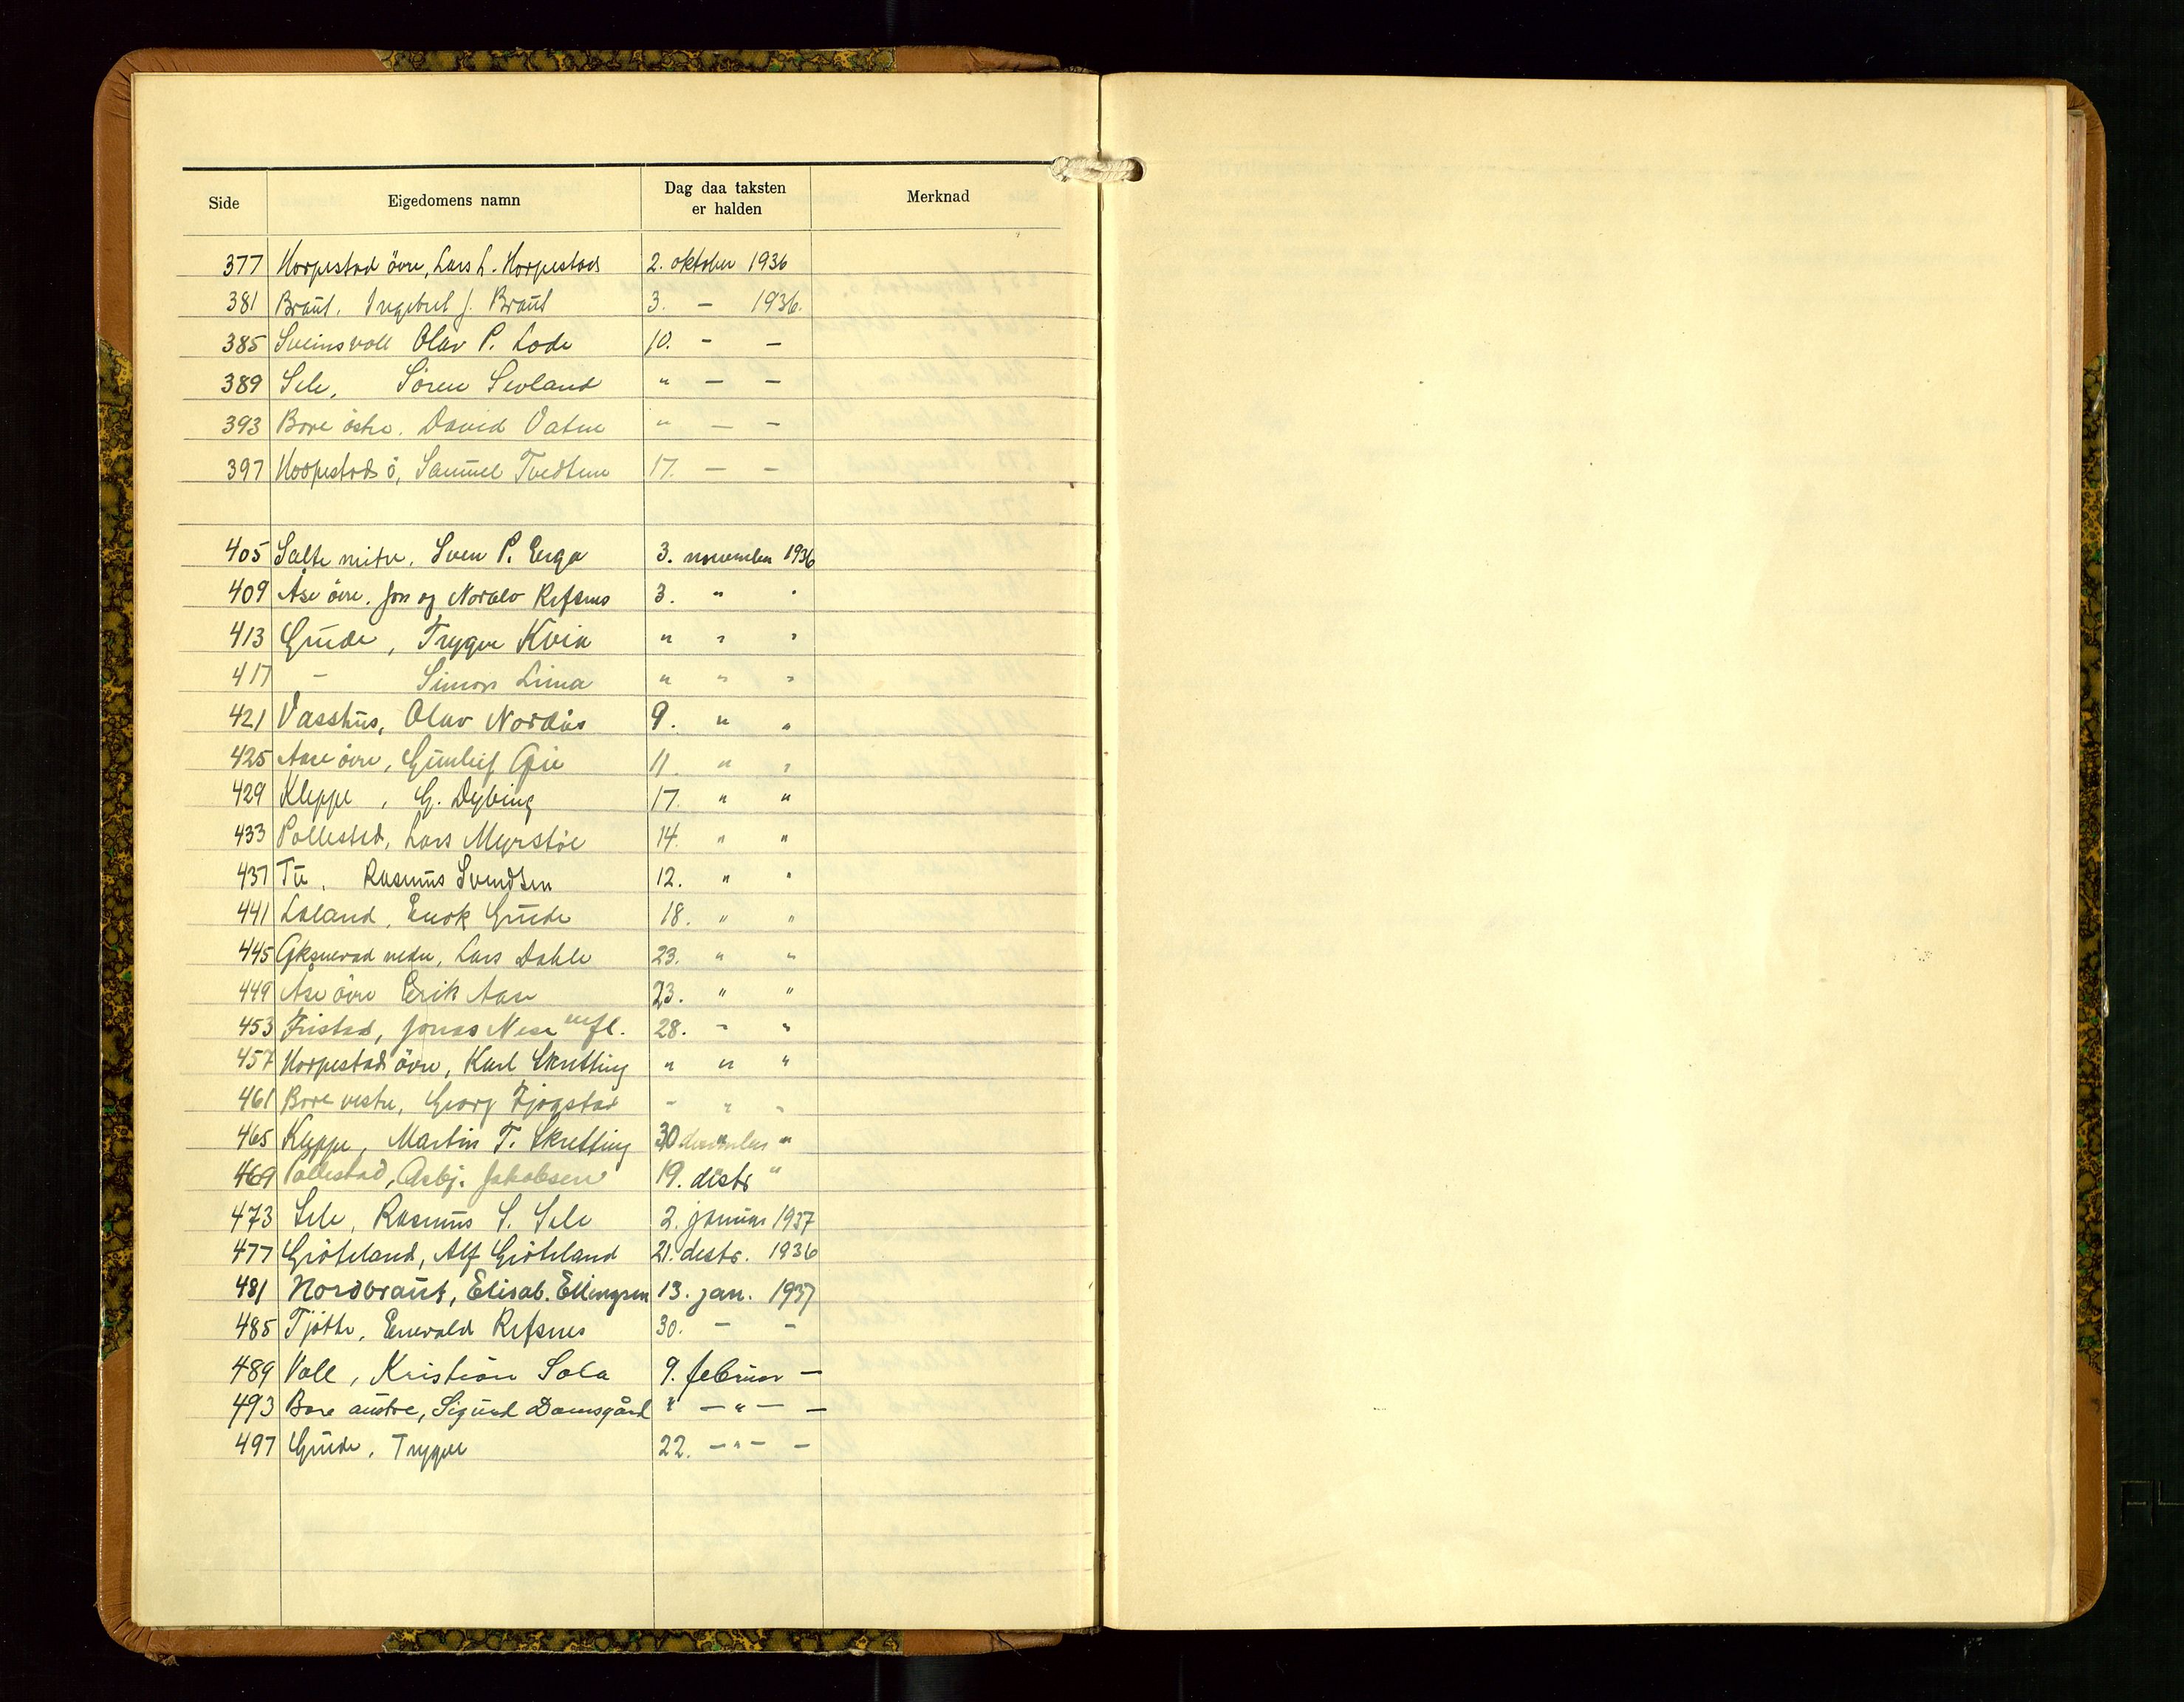 Side Eigedomens namn Dag daa taksten er halden Merknad
377 Horpestad övre, Lars L. Horpestad 2. oktober 1936
381 Braut. Ingebret J. Braut 3. — 1936.
385 Sveinsvoll Olav P. Lode 10. - —
389 Sele, Sören Sevland " — —
393 Bore östre. David Vatne " — —
397 Horpestad ö, Samuel Tvedtene 17. — —
405 Salte mitre, Sven P. Erga 3. november 1936
409 Åse övre. Jon og Nordlv Refsnes 3. " "
413 Grude, Trygve Kvia " " "
417 — Simon Lima " " "
421 Vasshus, Olav Nordås 9. " "
425 Aase övre, Gunleif 11. " "
429 Kleppe, G. Dybing 17. " "
433 Pollestad, Lars Myrstöl 14. " "
437 Tu, Rasmus Svendsen 12. " "
441 Laland, Enok Grude 18. " "
445 Öksnevad nedre, Lars Dahle 23. " "
449 Åse övre Erik Aase 23. " "
453 Friestad, Jonas Nese mfl. 28. " "
457 Horpestad övre, Karl Skretting " " "
461 Bore vestre, Georg Fjogstad " " "
465 Kleppe, Martin T. Skretting 30 december "
469 Pollestad, Asbj. Jakobsen 19. desbr "
473 Sele, Rasmus S. Sele 2. januar 1937
477 Gröteland, Alf Gröteland 21. desbr. 1936
481 Nordbraut, Elisab. Ellingsen 13. jan. 1937
485 Tjötte, Enevald Refsnes 30. — —
489 Voll, Kristian Sola 9. februar —
493 Bore austre, Sigurd Domsgård " — " — —
497 Grude, Trygve 22. — " — —